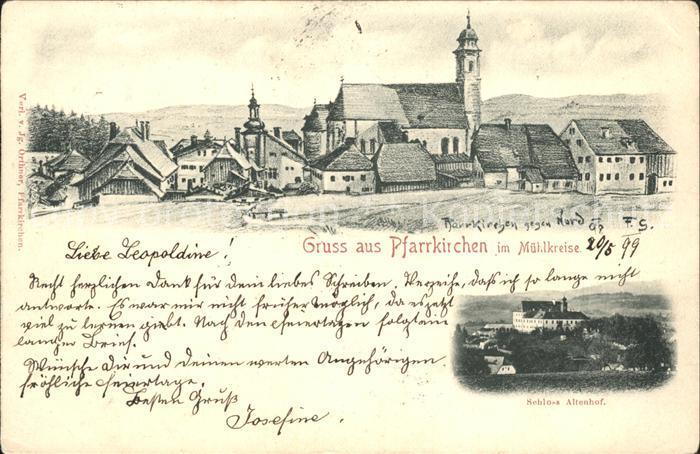 Pfarrkirchen gegen Nord F. S.
Gruss aus Pfarrkirchen im Mühlkreise. 20/5 99
Verl. v. Jg. Orthner, Pfarrkirchen.
Liebe Leopoldine!
Recht herzlichen Dank für dein liebes Schreiben. Verzeihe, daß ich so lange nicht
antworte. Es war mir nicht früher möglich, da es jetzt
viel zu lernen giebt. Nach den Feiertagen folgt ein
langer Brief.
Wünsche Dir und deinen werten Angehörigen
fröhliche Feiertage.
Besten Gruß
Josefine.
Schloss Altenhof.